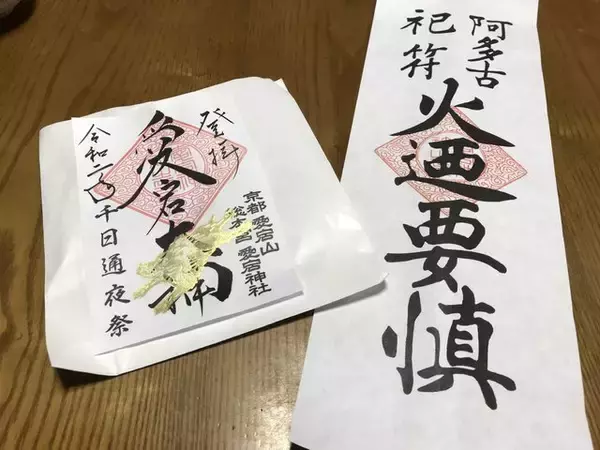 登拝
愛宕
令和二年千日通夜祭
京都 愛宕山
総本宮 愛宕神社
阿多古
祀符
火迺要慎